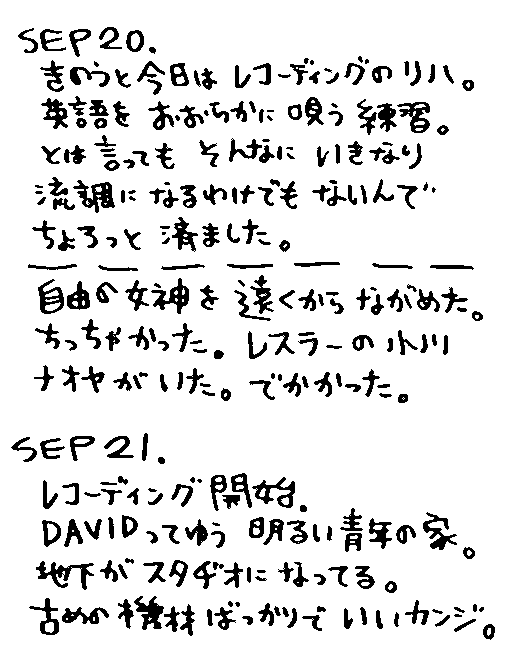 SEP 20.
きのうと今日は レコーディングのリハ。
英語を おおらかに 唄う 練習。
とは 言っても そんなに いきなり
流調に なるわけでも ないんで
ちょろっと 済ました。
自由の女神を 遠くから ながめた。
ちっちゃかった。レスラーの 小川
ナオヤが いた。でかかった。
SEP 21.
レコーディング 開始.
DAVIDってゆう 明るい 青年の 家。
地下が スタヂオに なってる。
古めの 機材 ばっかりで いい カンジ。